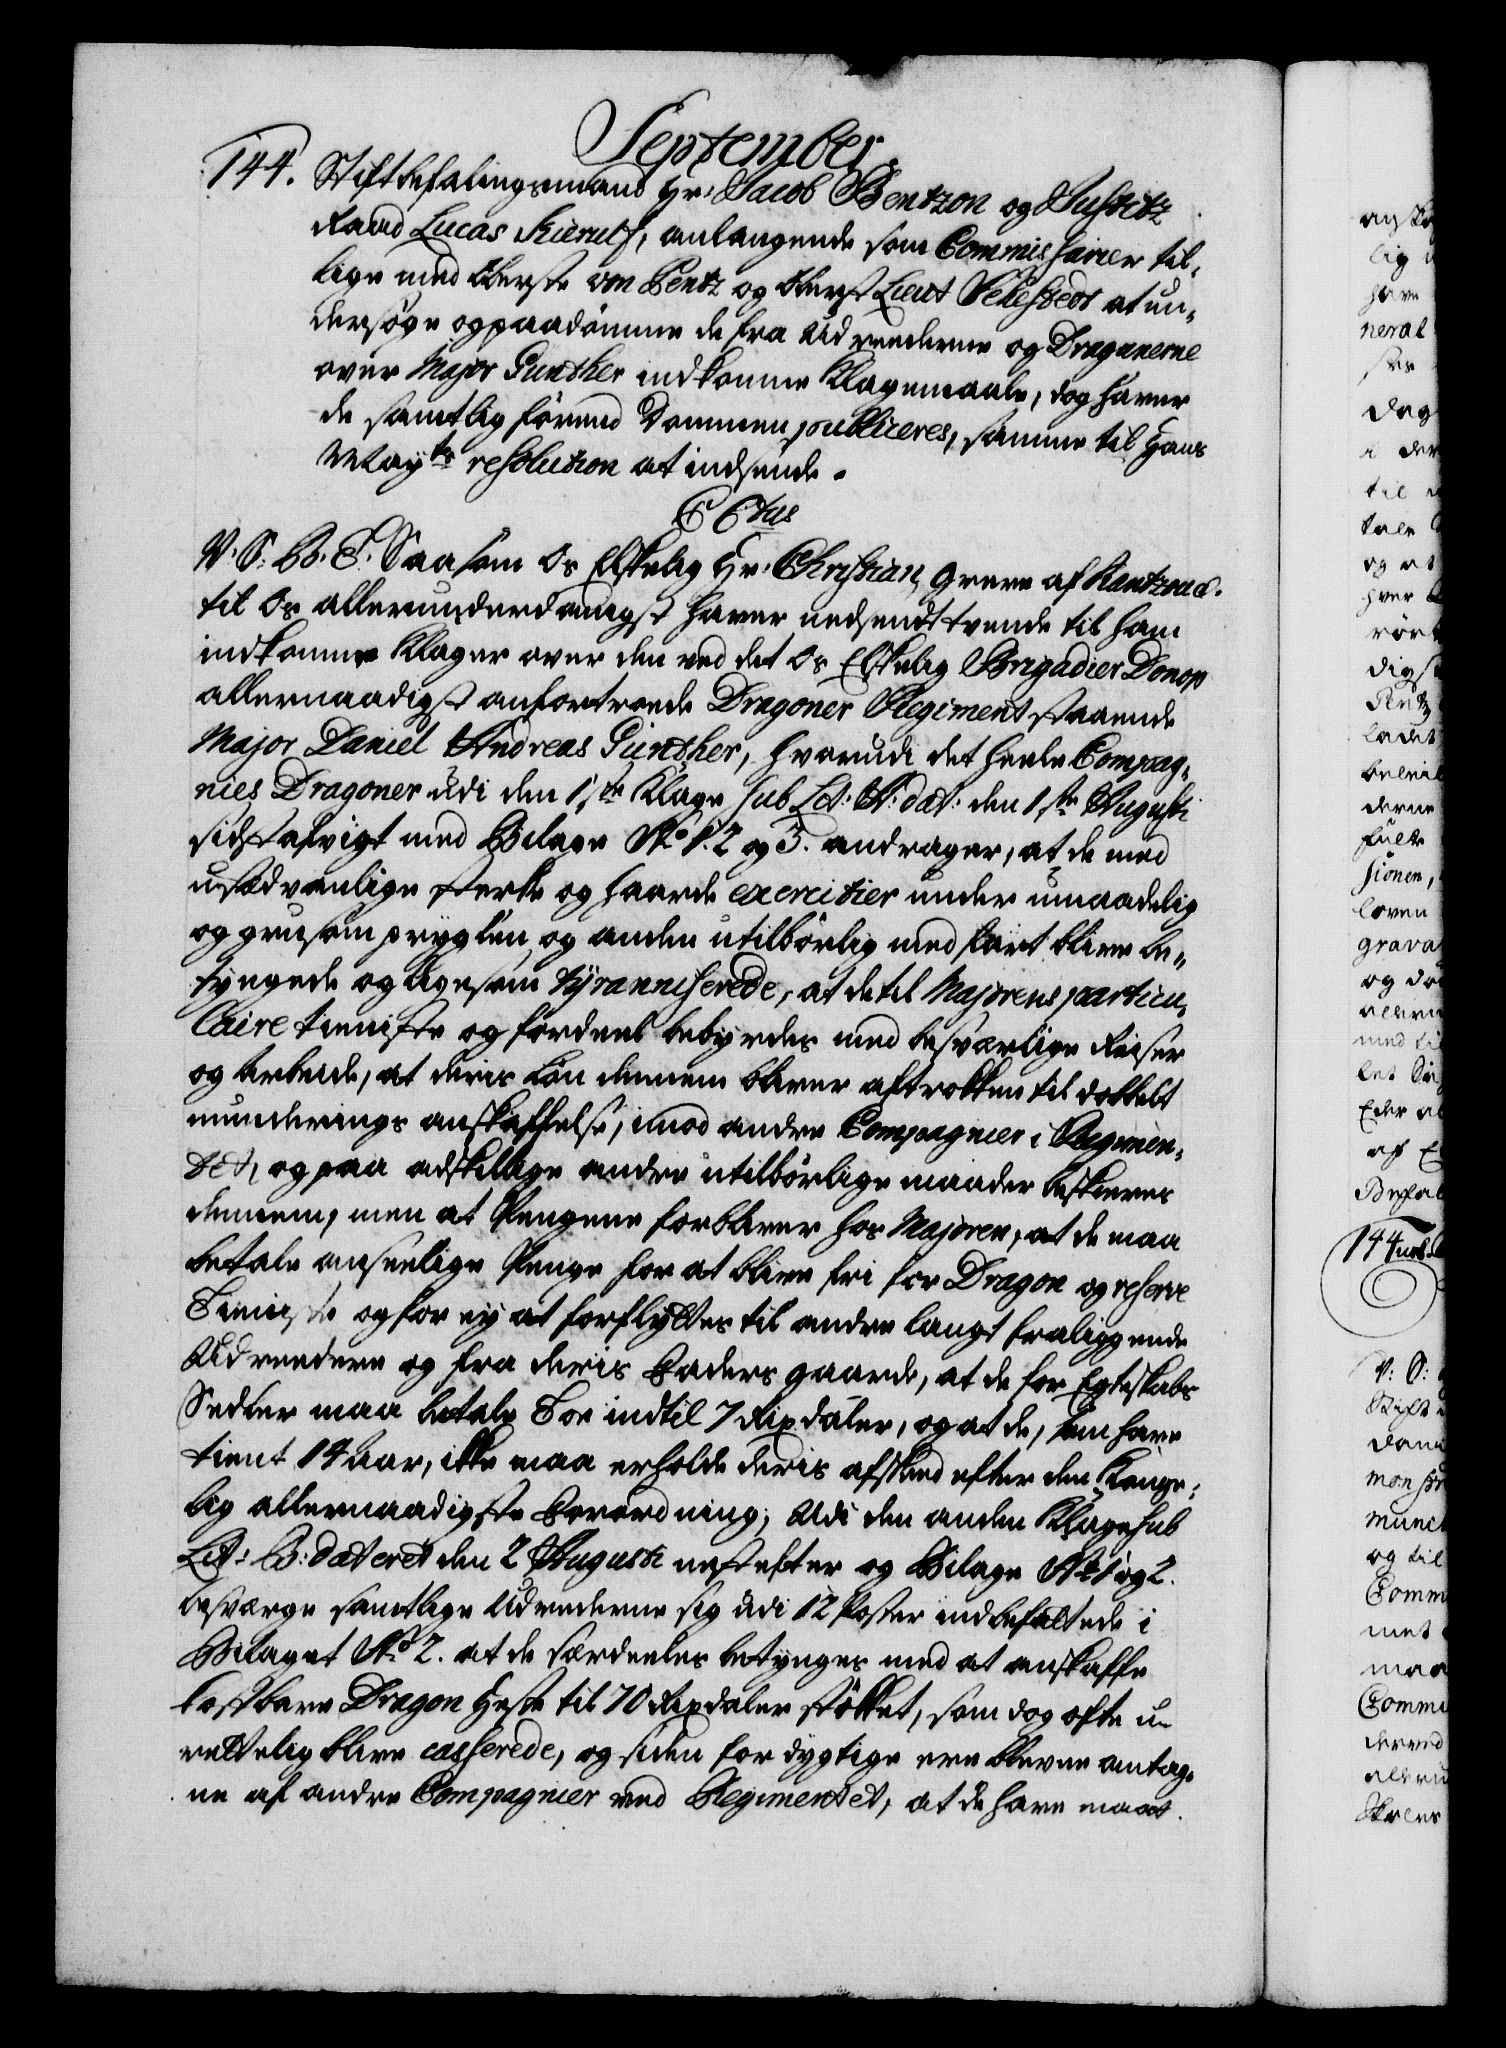 September.
144. Stiftbefalingsmand Hr: Jacob Bentzon og Justitz
Raad Lucas Kierulf, anlangende som Commissairer til-
lige med Oberste von Pentz og Oberst Lieut Sehested at un-
dersøge og paadømme de fra Udreederne og Dragunerne
over Major Gunther indkomne Klagemaale, dog haver
de samtlig førend Dommen publiceres, samme til Hans
Mayts resolution at indsende.
C 6tus
V. S: B. T. Saasom Os Elskelig Hr: Christian, Greve af Rantzau &.
til Os allerunderdanigst haver nedsendt tvende til ham
indkomne Klager over den ved det Os Elskelig Brigadier Donop
allernaadigst anfortroede Dragoner Regiment staaende
Major Daniel Andreas Günther, hvorudi det heele Compag-
nies Dragoner udi den 1ste Klage sub Lit: A: dat: den 1ste Augusti
sidst afvigt med Bilage No 1. 2 og 3. andrager, at de med
usædvanlige sterke og haarde exercitier under umaadelig
og grusom pryglen og anden utilbørlig medfart blive be-
tyngede og ligesom tyranniserede, at de til Majorens particu-
laire tienniste og fordeel bebyrdes med besværlige Reiser
og Arbeide, at deris Løn dennem bliver aftrokken til dobbelt
munderings anskaffelse, imod andre Compagnier i Regimen-
tet, og paa adskillige andre utilbørlige maader beskieres
dennem, men at Pengene forbliver hos Majoren, at de maa
betale anseelige Penge for at blive fri for Dragon og reserve
Tieniste og for ey at forflyttes til andre langt fraliggende
Udreedere og fra deris Faders gaarde, at de for Egteskabs
Sedler maa betale Før indtil 7 Rixdaler, og at de, som have
tient 14 Aar, ikke maa erholde deris afskeed efter den Konge-
lig allernaadigste Forordning; Udi den anden Klage sub
Lit: B: dateret den 2 Augusti nest efter og Bilage No 1 og 2.
besværge samtlige Udrederne sig udi 12 Poster indbefattede i
Bilaget No 2. at de særdeeles betynges med at anskaffe
kostbare Dragon Heste til 70 Rixdaler støkket, som dog ofte u-
rettelig blive casserede, og siden for dygtige ere blevne antag-
ne af andre Compagnier ved Regimentet, at de have maat